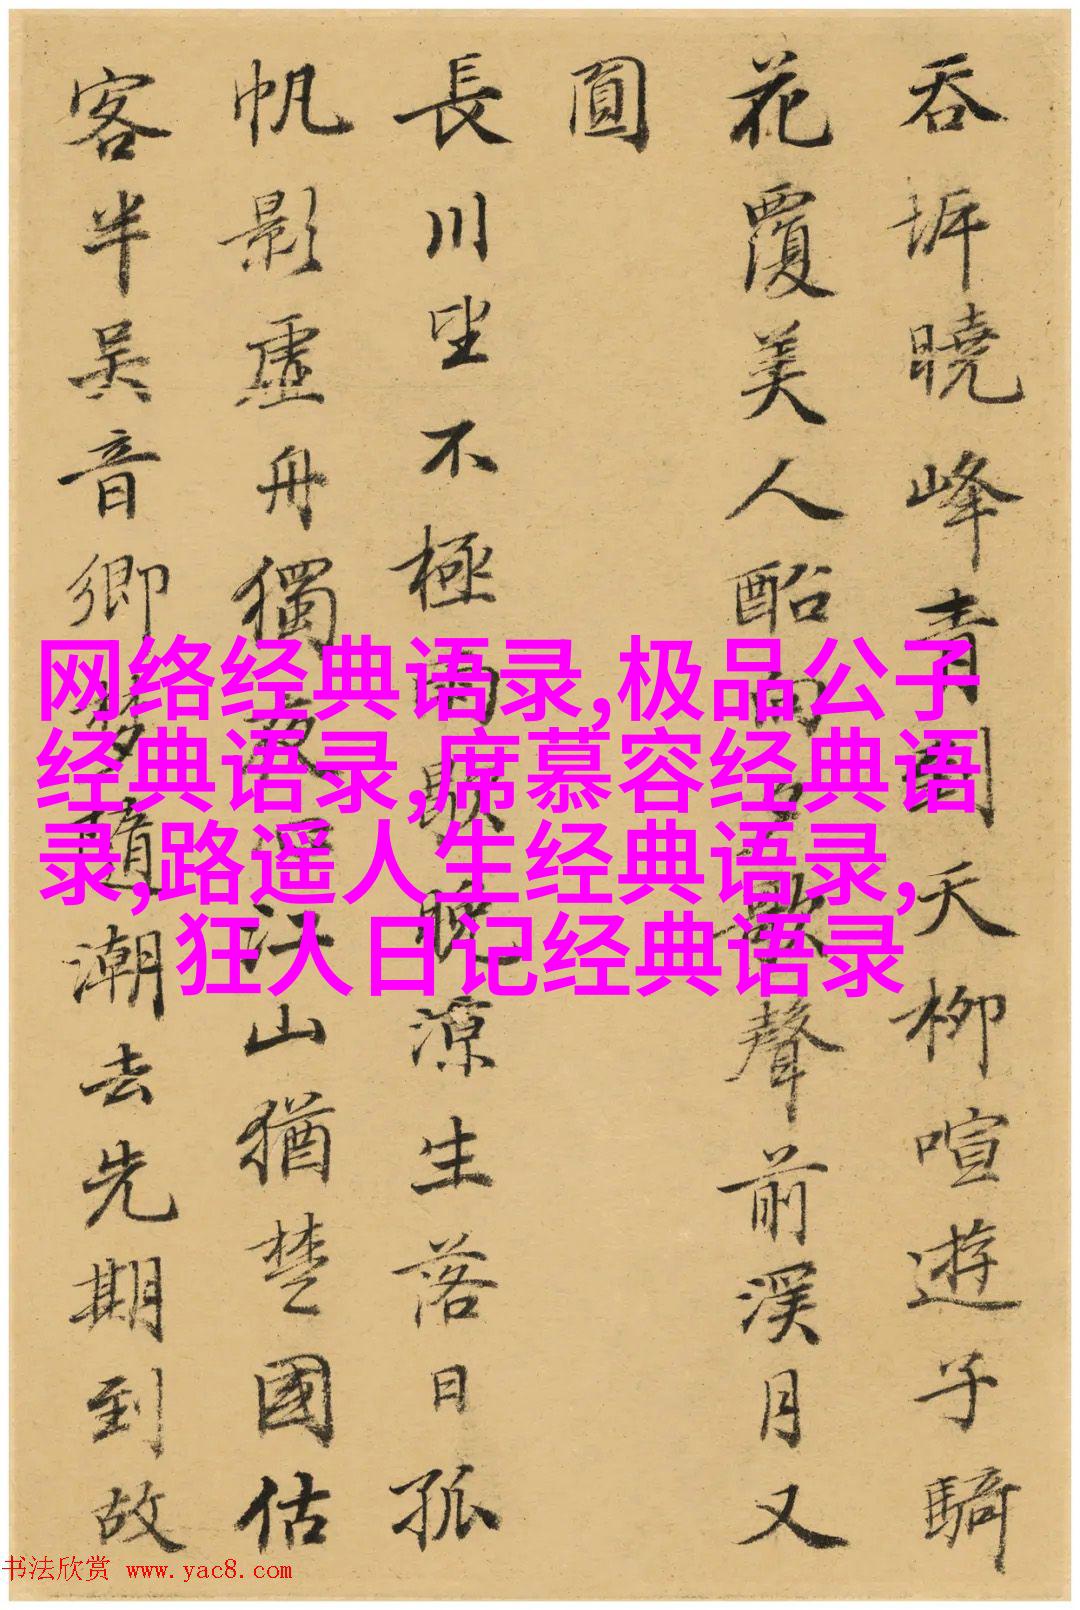 吞坼曉峰青天柳喧遊子騎
花覆美人向歌聲前溪月又
圓
長川坐不極雨歇晚涼生落日孤
帆影虛舟獨夜深江山猶楚國估
客半吳音鄉夢隨潮去先期到故
网络经典语录,极品公子
经典语录,席慕容经典语
录,路遥人生经典语录,
狂人日记经典语录
书法欣赏 www.yac8.com